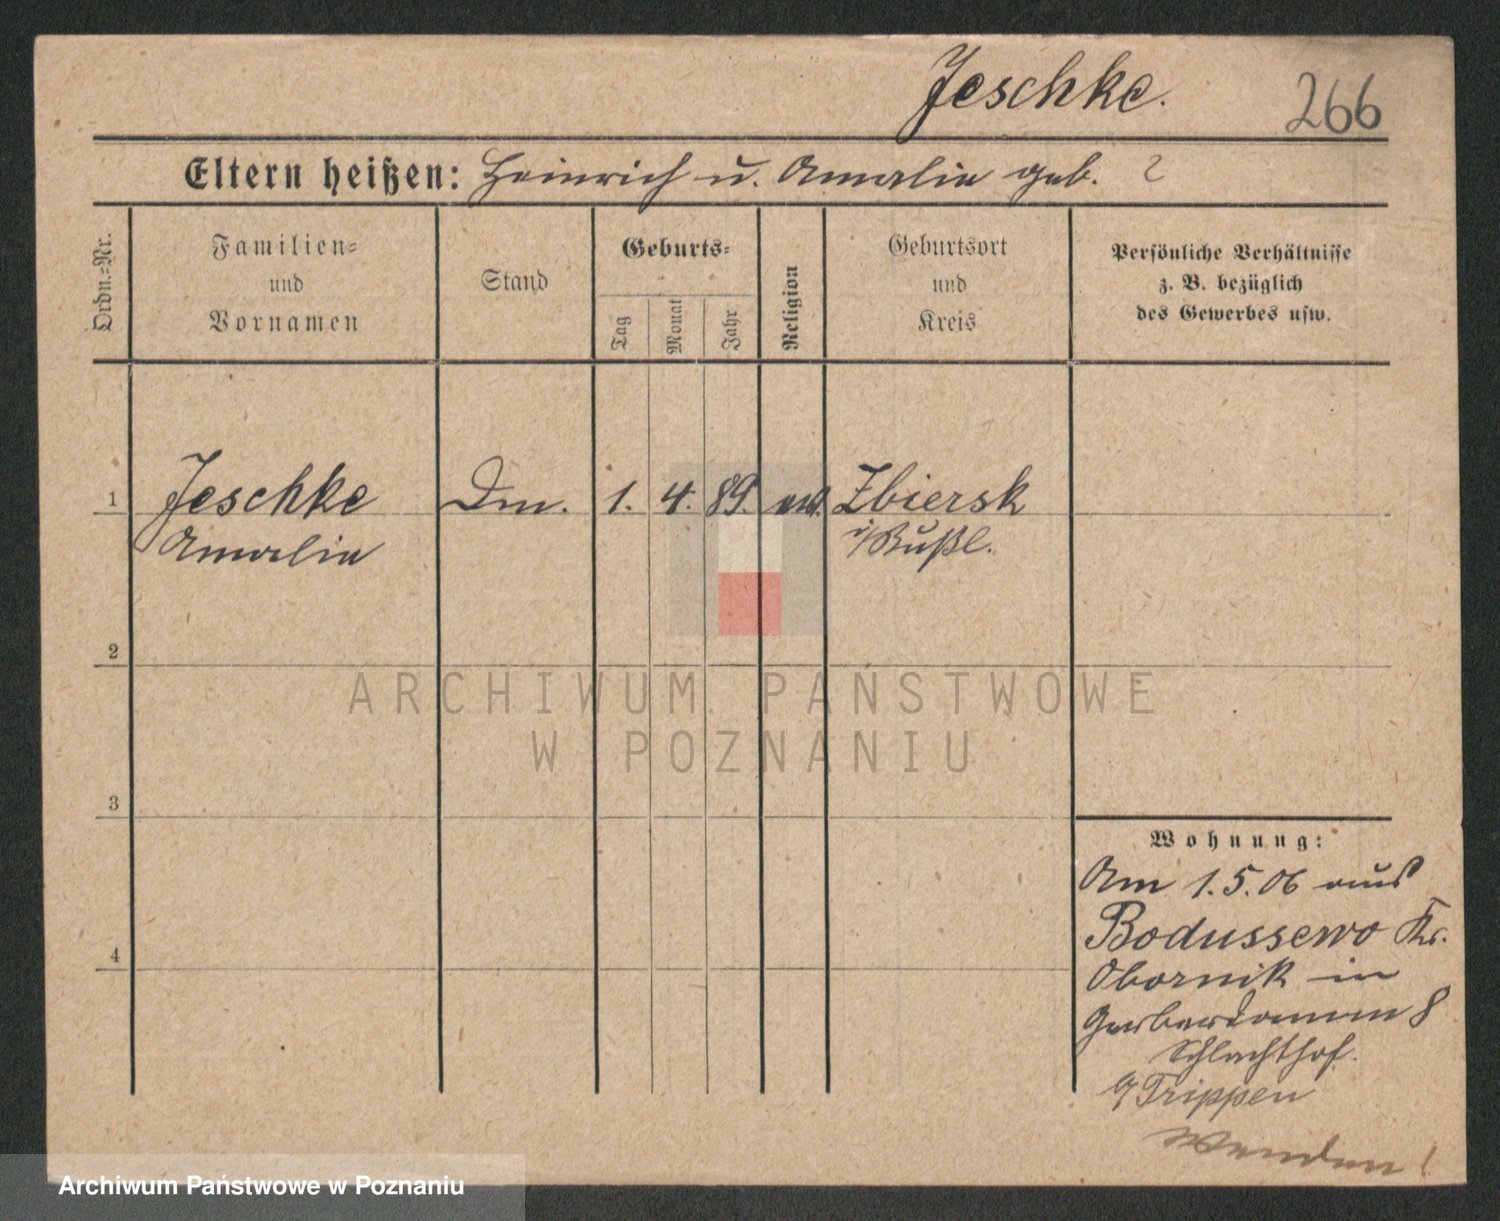 Jeschke.
266
Eltern heißen: Heinrich u. Amalie geb. ?
Ordn.-Nr.
Familien-
und
Vornamen
Stand
Geburts-
Tag
Monat
Jahr
Religion
Geburtsort
und
Kreis
Persönliche Verhältnisse
z. B. bezüglich
des Gewerbes usw.
1 Jeschke Dm. 1. 4. 89. ev. Zbiersk
Amalie i/Rußl.
2
3
4
ARCHIWUM PAŃSTWOWE
W POZNANIU
Wohnung:
Am 1.5.06 aus
Bodussewo Kr.
Obornik in
Gerberdamm 8
Schlachthof.
b/Trippen
Wenden!
Archiwum Państwowe w Poznaniu